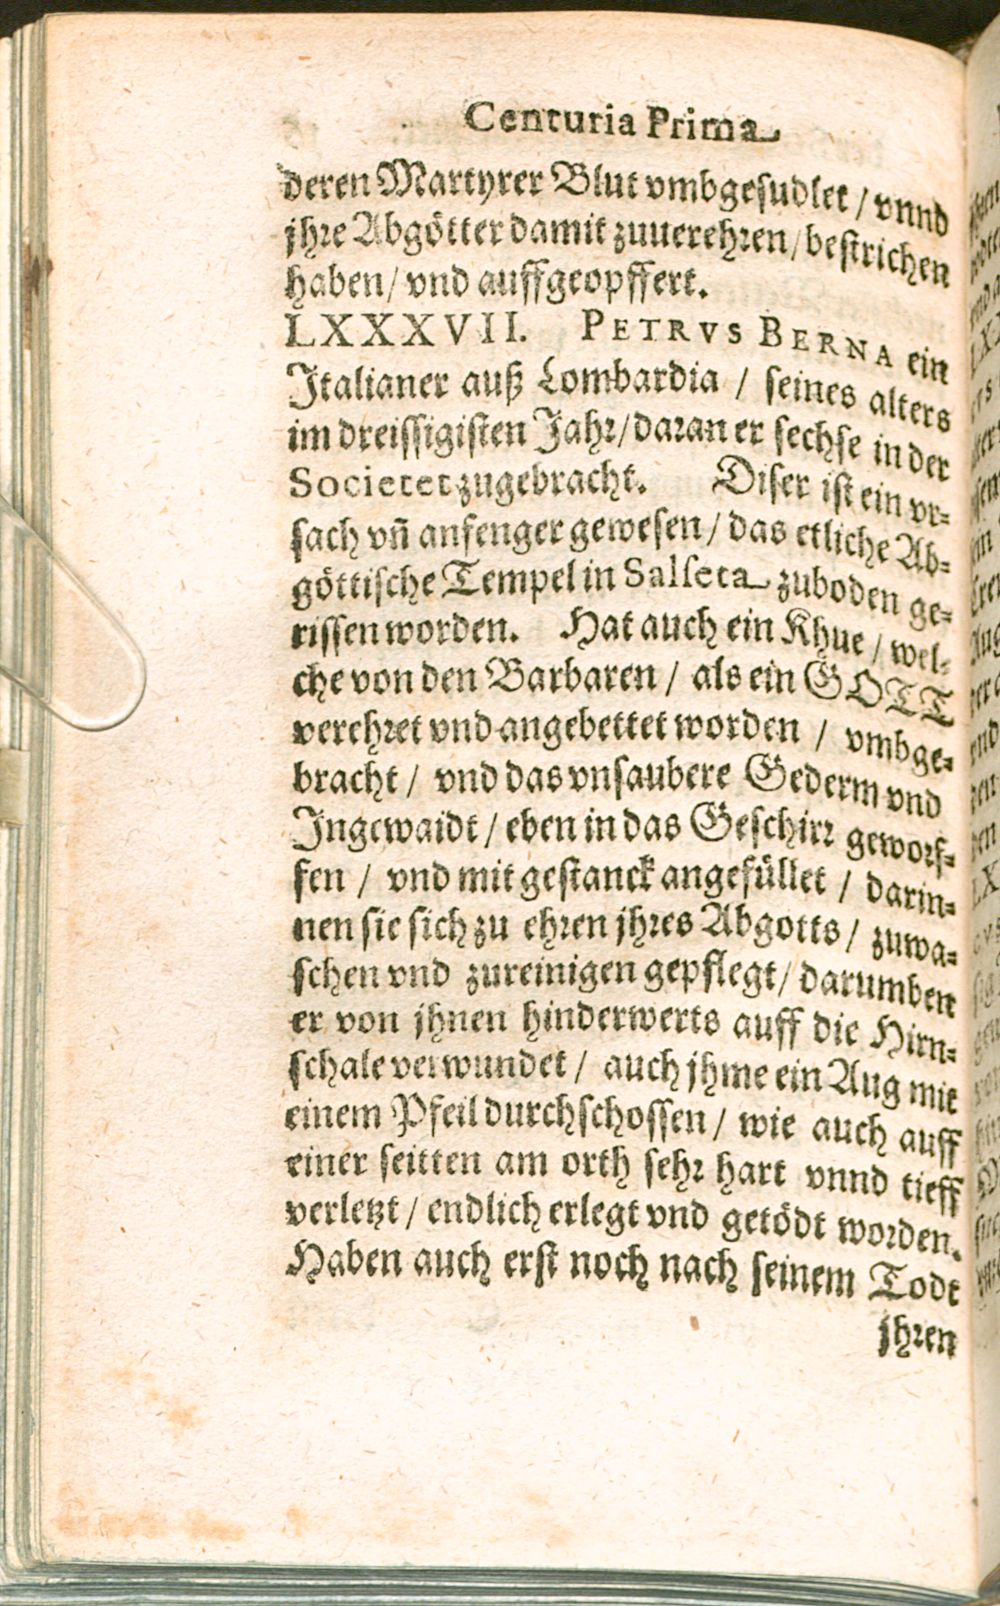 Centuria Prima
deren Martyrer Blut vmbgesudlet / vnnd
jhre Abgötter damit zuuerehren / bestrichen
haben / vnd auffgeopffert.
LXXXVII. PETRVS BERNA ein
Italianer auß Lombardia / seines alters
im dreissigisten Jahr / daran er sechse in der
Societet zugebracht. Diser ist ein vr=
sach vñ anfenger gewesen / das etliche Ab=
göttische Tempel in Salseta zuboden ge=
rissen worden. Hat auch ein Khue / wel=
che von den Barbaren / als ein GOTT
verehret vnd angebettet worden / vmbge=
bracht / vnd das vnsaubere Gederm vnd
Ingewaidt / eben in das Geschirr geworf=
fen / vnd mit gestanck angefüllet / darin=
nen sie sich zu ehren jhres Abgotts / zuwa=
schen vnd zureinigen gepflegt / darumben
er von jhnen hinderwerts auff die Hirn=
schale verwundet / auch jhme ein Aug mit
einem Pfeil durchschossen / wie auch auff
einer seitten am orth sehr hart vnnd tieff
verletzt / endlich erlegt vnd getödt worden.
Haben auch erst noch nach seinem Todt
jhren